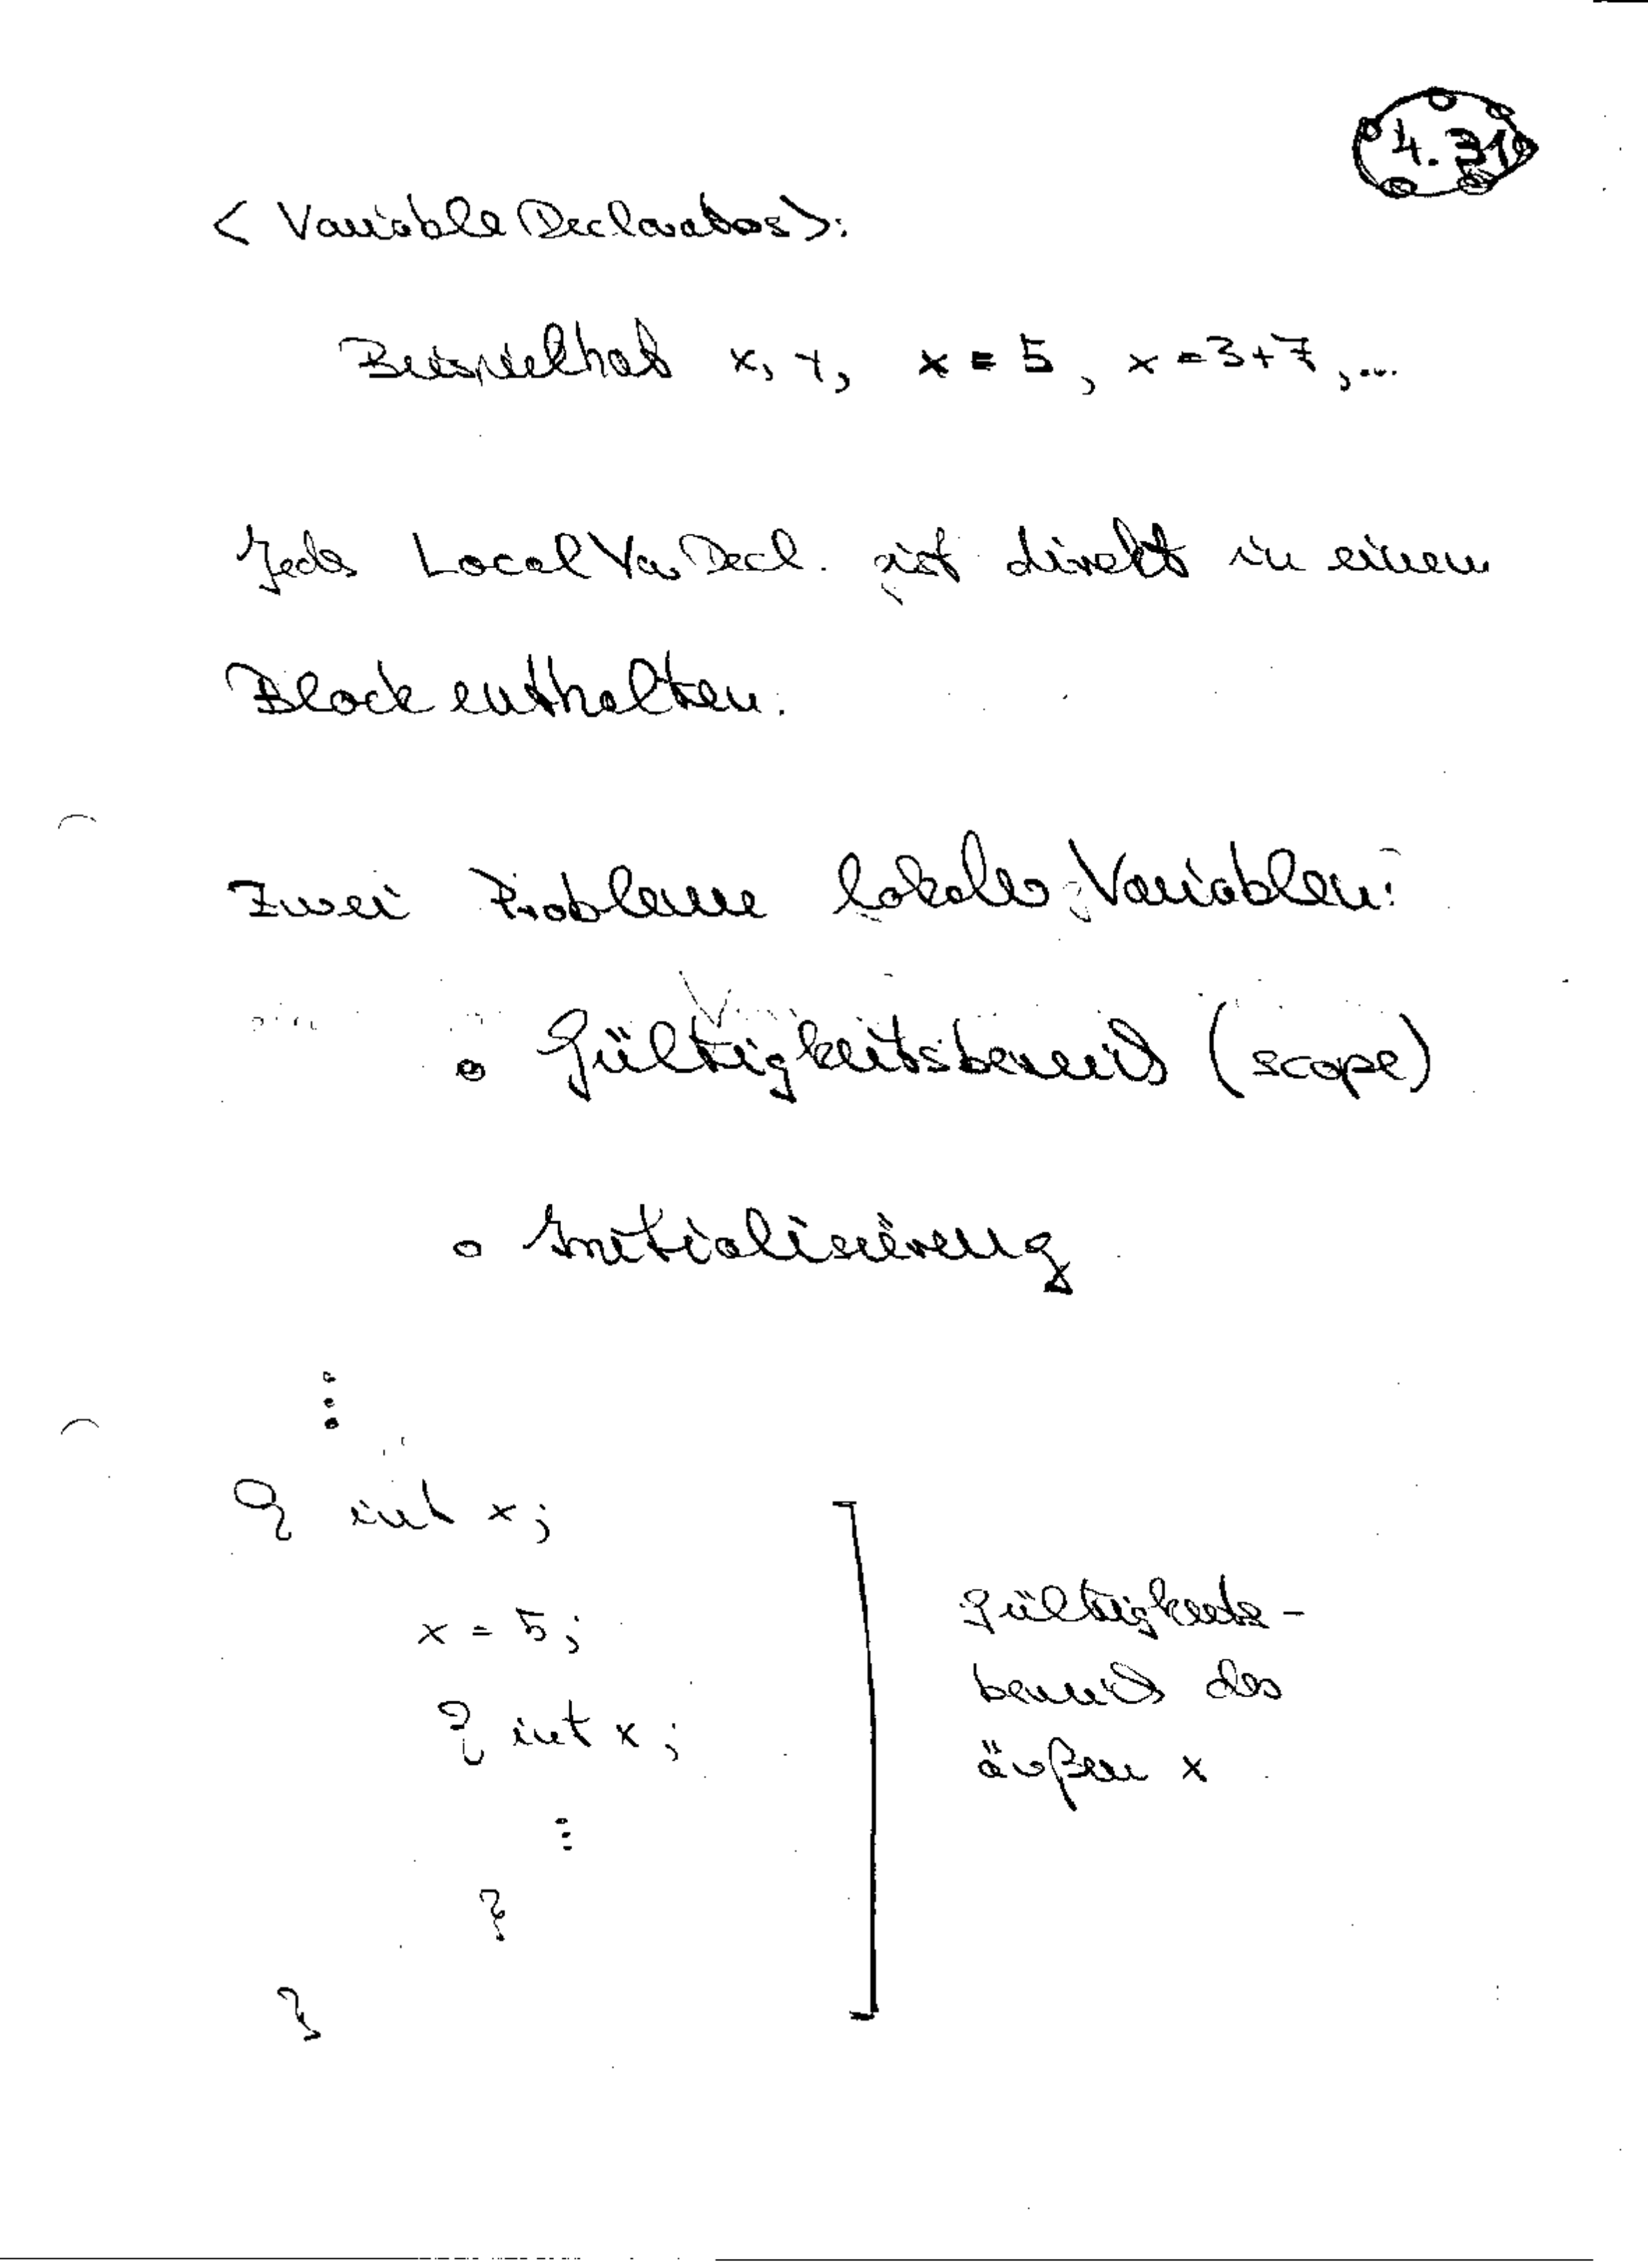 4.31
<VariableDeclarator>:
Beispielhaft x, y, x = 5, x = 3+7, ...
Jede LocalVarDecl. ist direkt in einem
Block enthalten.
Zwei Probleme lokaler Variablen:
o Gültigkeitsbereich (scope)
o Initialisierung
⋮
{ int x;
x = 5;
{ int x;
⋮
}
}
Gültigkeits-
bereich des
äußeren x